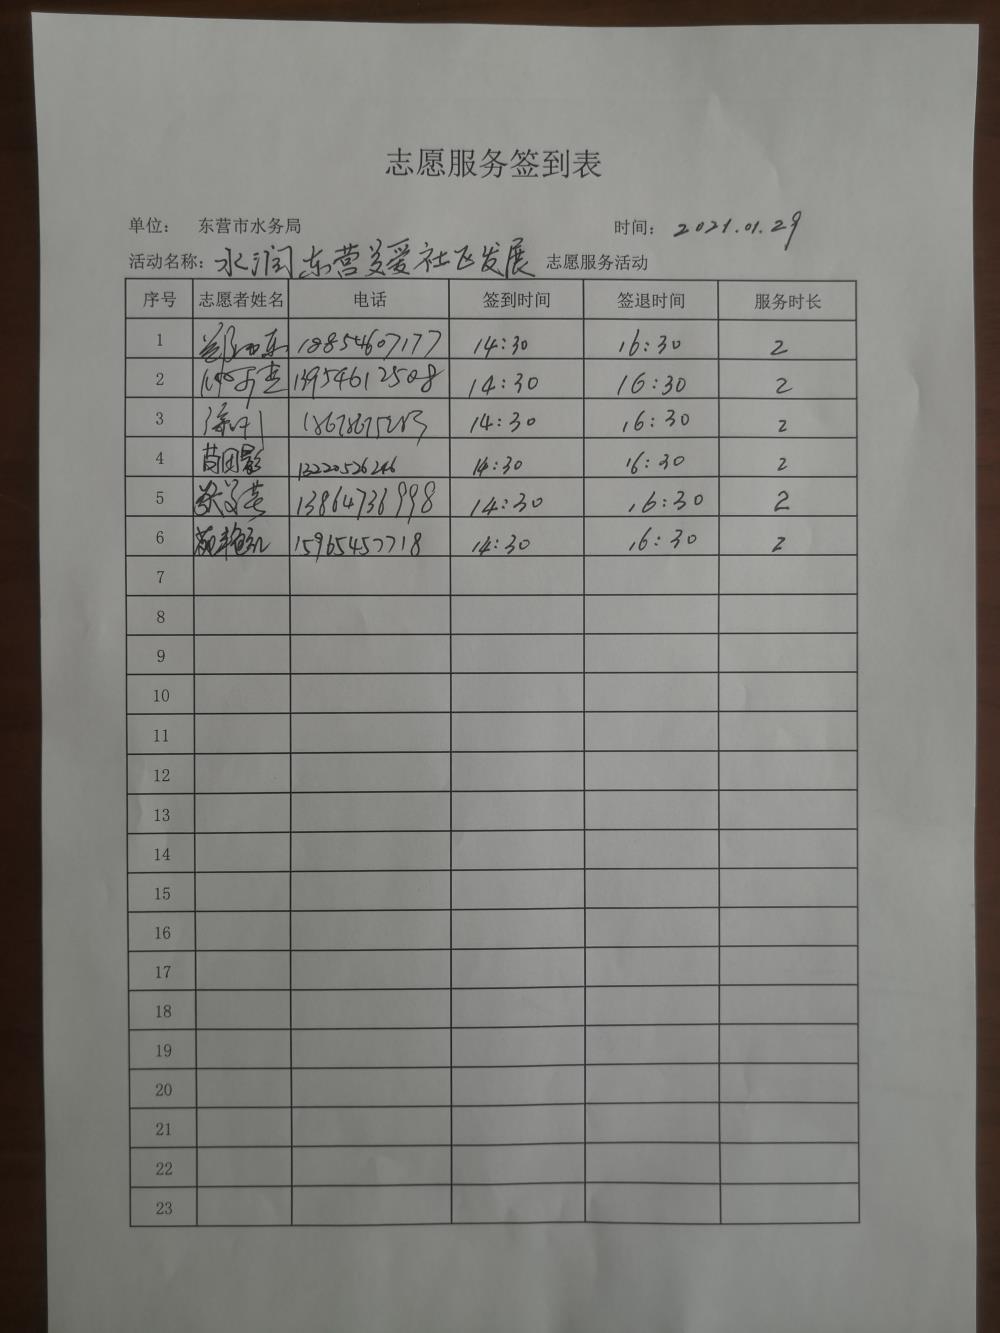 志愿服务签到表
单位： 东营市水务局 时间： 2021.01.29
活动名称：水润东营关爱社区发展 志愿服务活动
序号 志愿者姓名 电话 签到时间 签退时间 服务时长
1 18854607177 14:30 16:30 2
2 13954612508 14:30 16:30 2
3 14:30 16:30 2
4 13220526246 14:30 16:30 2
5 13864736998 14:30 16:30 2
6 15965457718 14:30 16:30 2
7
8
9
10
11
12
13
14
15
16
17
18
19
20
21
22
23